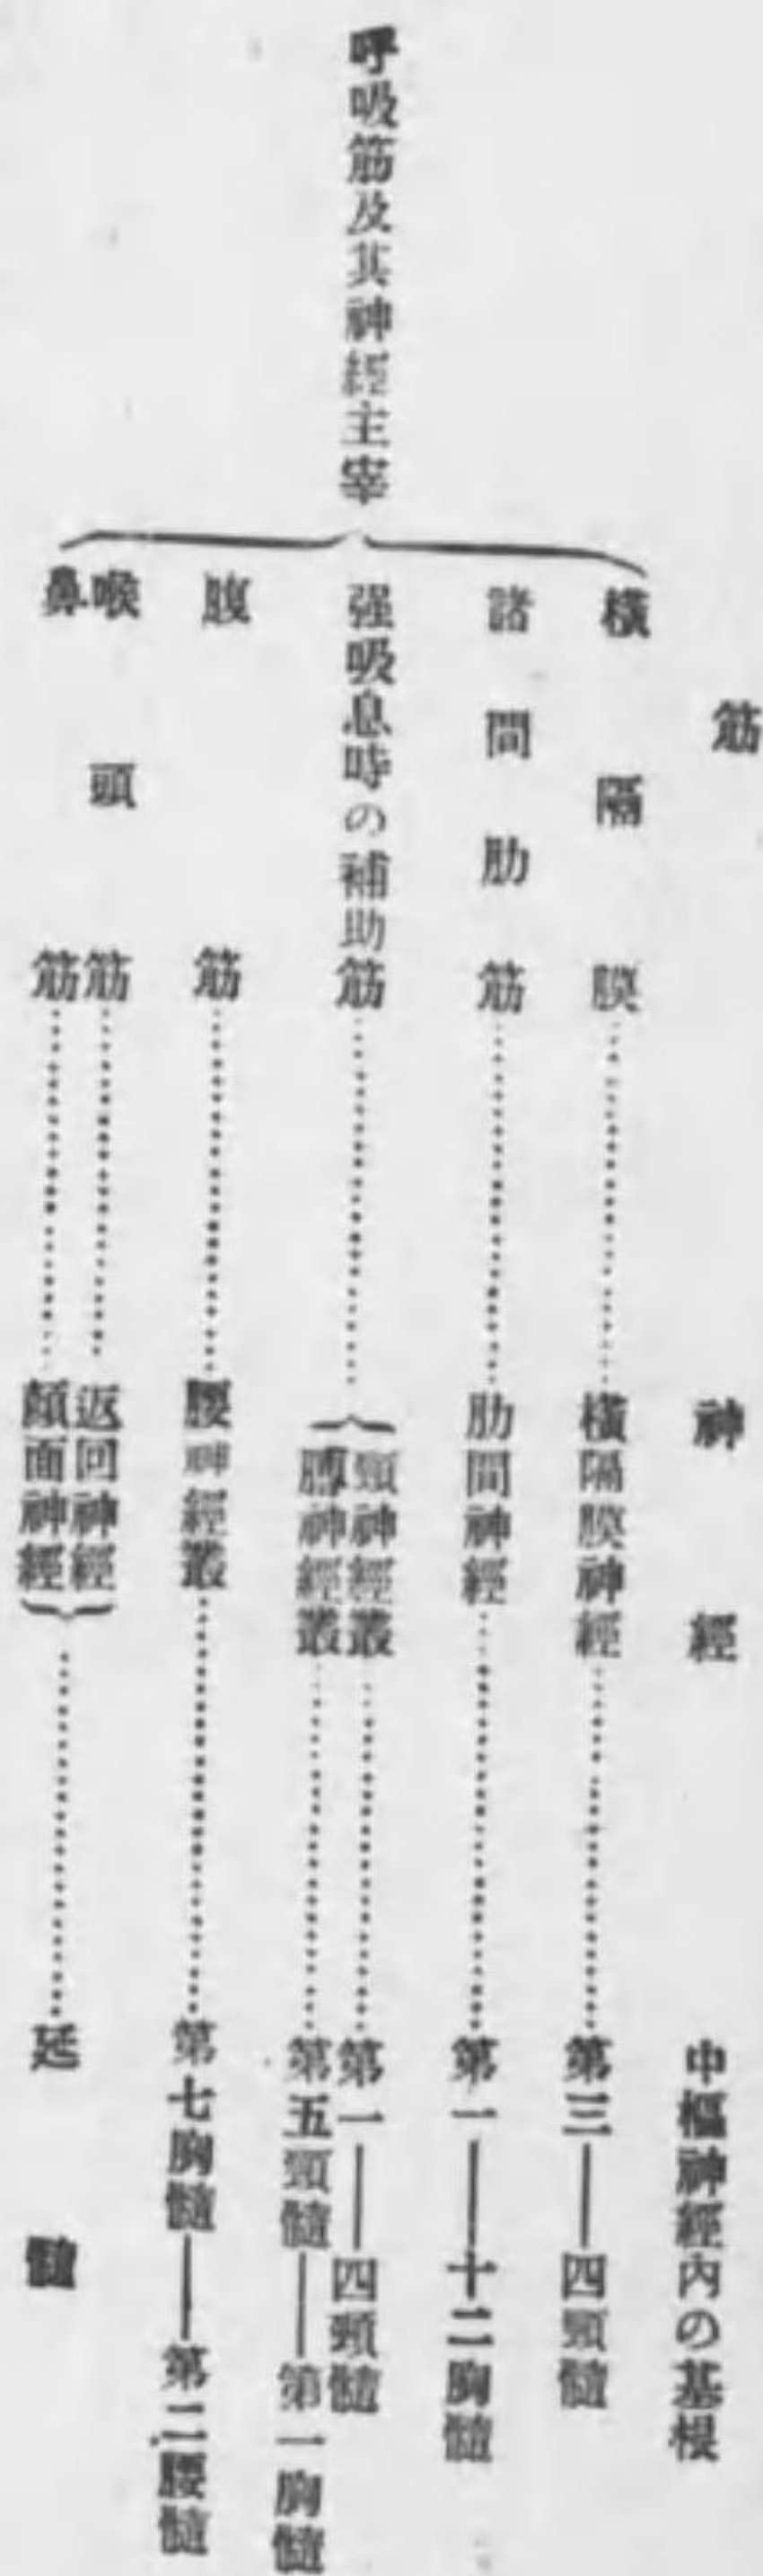 筋 神經 中樞神經內の基根
呼吸筋及其神經主宰
橫隔膜……橫隔膜神經……第三——四頸髓
諸間肋筋……肋間神經……第一——十二胸髓
强吸息時の補助筋……
頸神經叢……第一——四頸髓
膊神經叢……第五頸髓——第一胸髓
腹筋……腰神經叢……第七胸髓——第二腰髓
喉頭筋……返回神經
鼻筋……顏面神經
……延髓